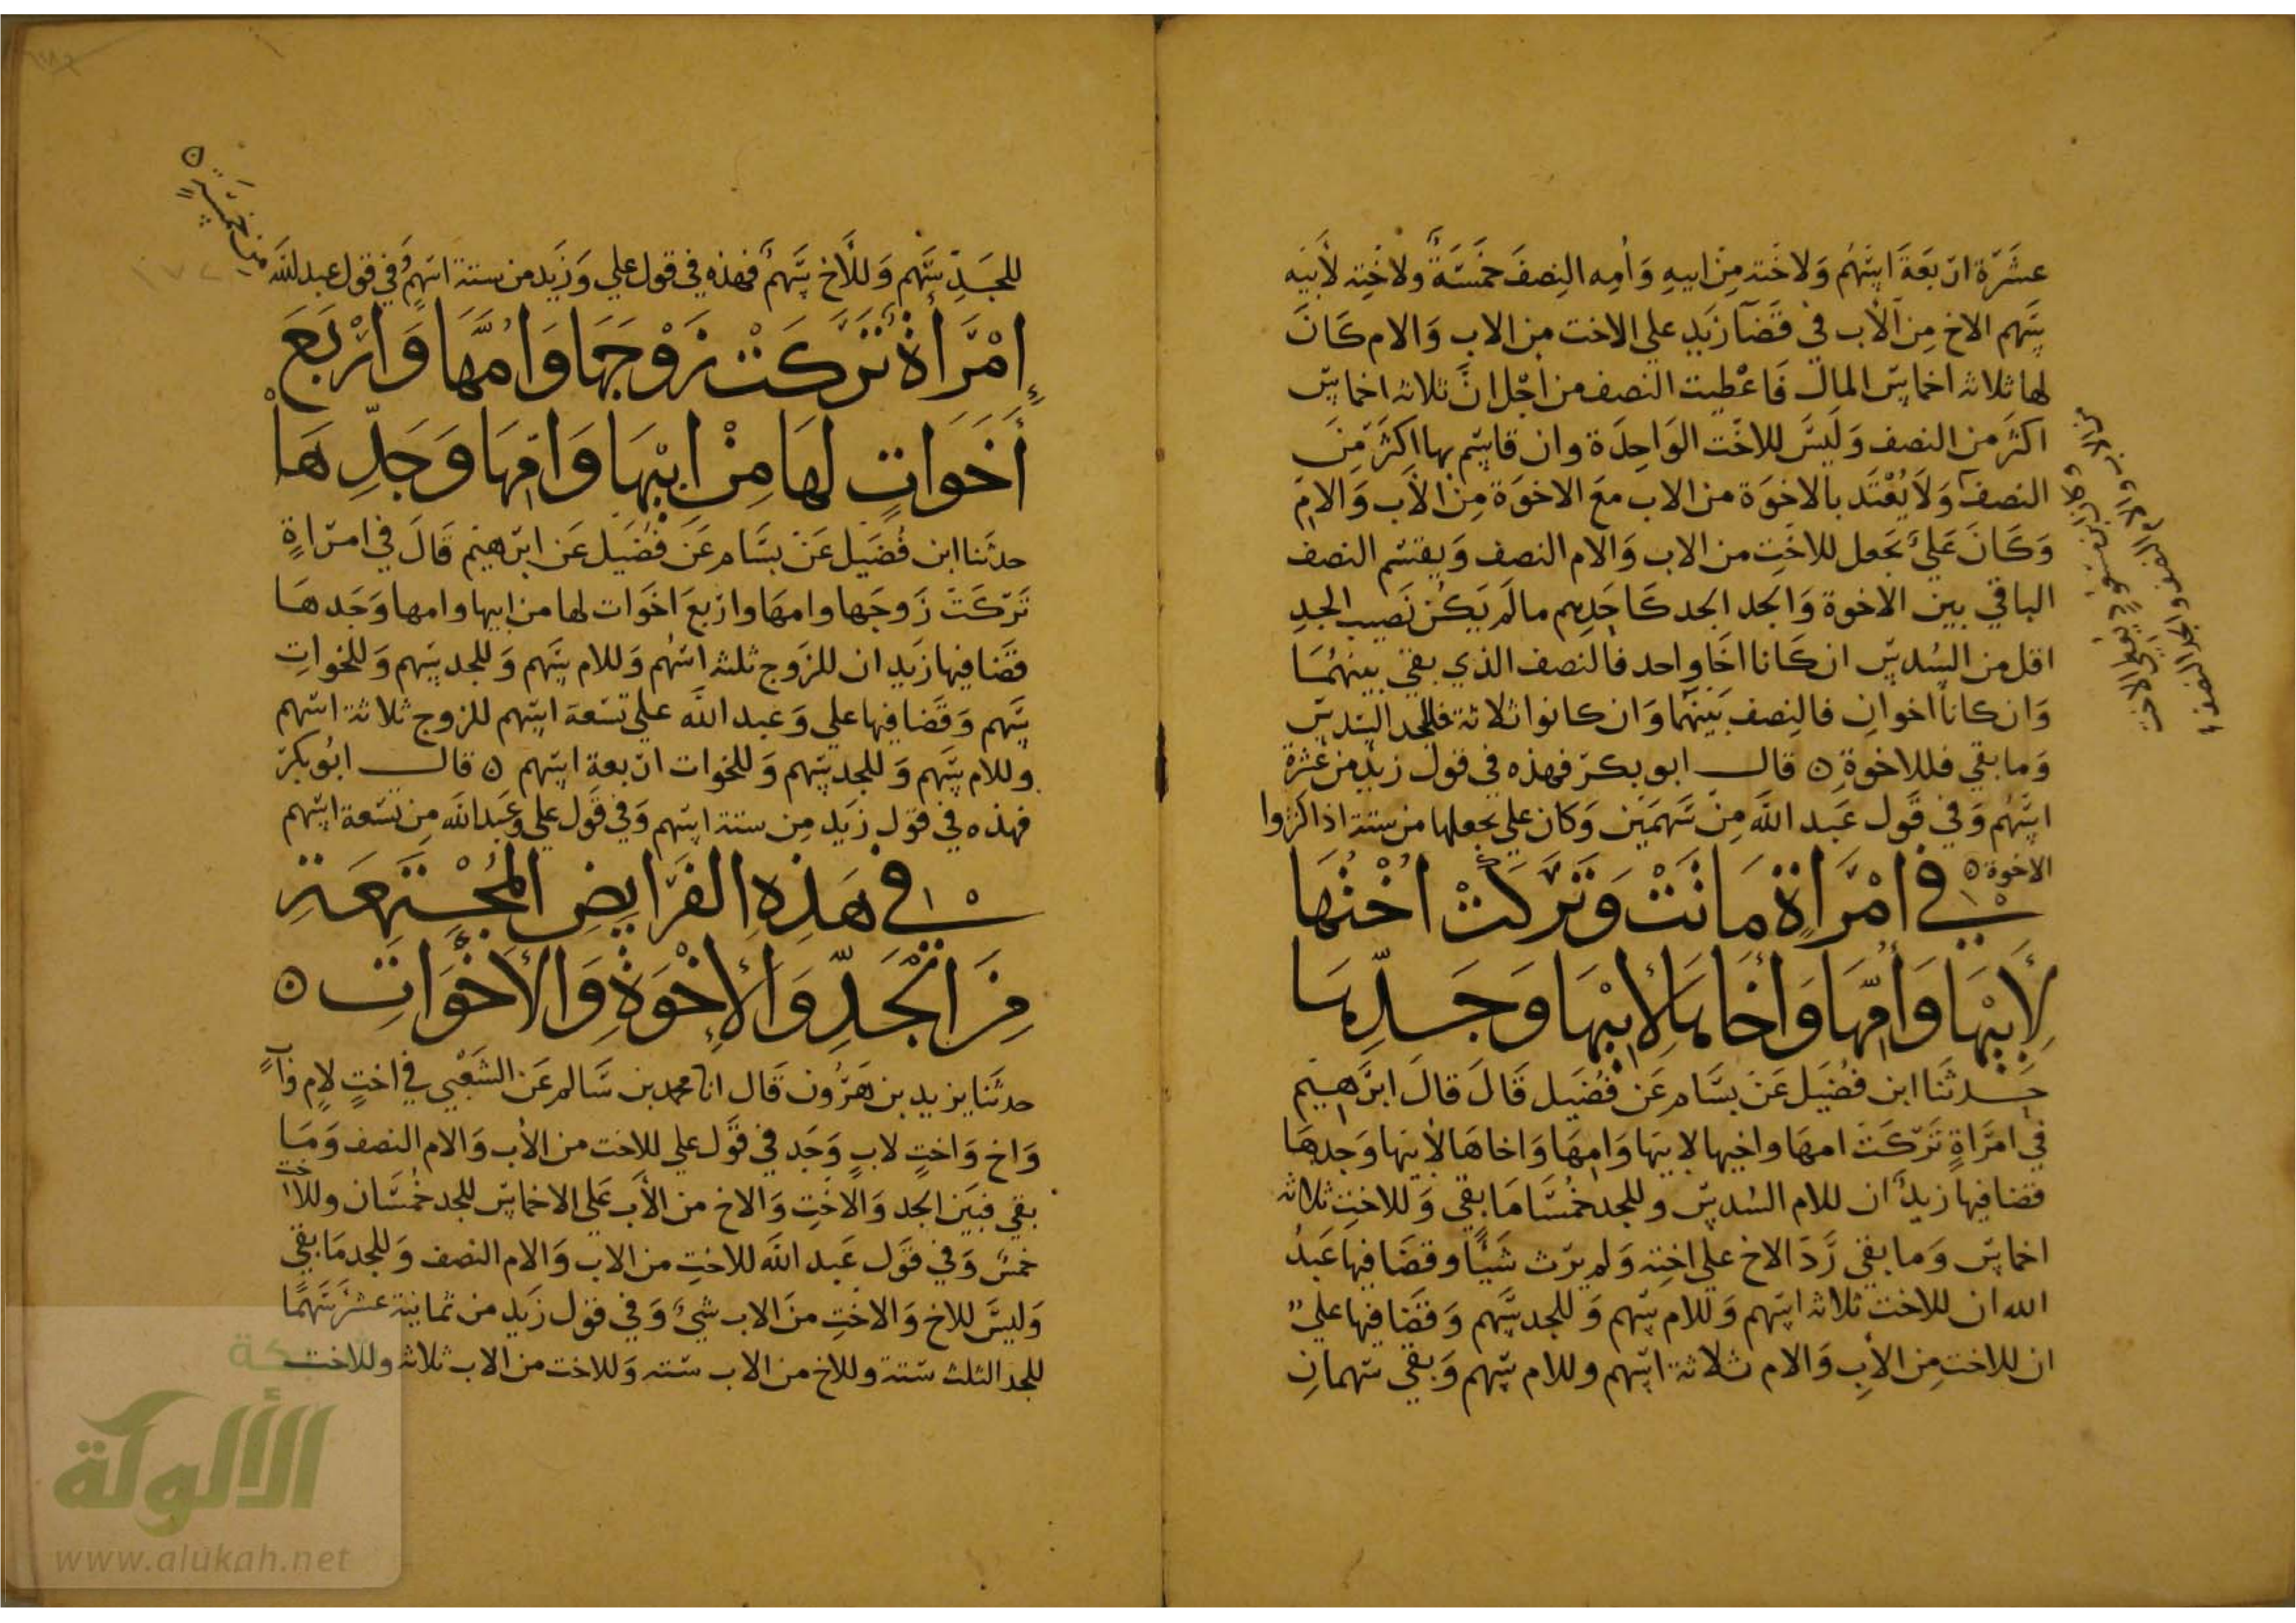 عشرة اربعة اسهم ولاخته من ابيه وامه النصف خمسة ولاخته لابيه
سهم الاخ من الاب في قضا زيد على الاخت من الاب والام كان
لها ثلاثه اخماس المال فاعطيت النصف من اجل ان ثلاثه اخماس
اكثر من النصف وليس للاخت الواحدة وان قاسم بها اكثر من
النصف ولا يعتد بالاخوة من الاب مع الاخوة من الاب والام
وكان علي يجعل للاخت من الاب والام النصف ويقسم النصف
الباقي بين الاخوة والجد الجد كاحدهم ما لم يكن نصيب الجد
اقل من السدس ان كانا اخا واحد فالنصف الذي بقي بينهما
وان كانا اخوان فالنصف بينهما وان كانوا ثلاثة فللجد السدس
وما بقي فللاخوة ه قال ابو بكر فهذه في قول زيد من عشرة
اسهم وفي قول عبد الله من سهمين وكان علي يجعلها من ستة اذا كثروا
الاخوة ه
في امراة ماتت وتركت اختها
لابيها وامها واخاها لابيها وجدها
حدثنا ابن فضيل عن بسام عن فضيل قال قال ابرهيم
في امراة تركت امها واختها لابيها وامها واخاها لابيها وجدها
قضا فيها زيد ان للام السدس وللجد خمسا ما بقي وللاخت ثلاثه
اخماس وما بقي رد الاخ على اخته ولم يرث شيا وقضا فيها عبد
الله ان للاخت ثلاثه اسهم وللام سهم وللجد سهم وقضا فيها علي
ان للاخت من الاب والام ثلاثة اسهم وللام سهم وبقي سهمان
وكان ابن مسعود يعطي الاخت
من الاب والام النصف والجد النصف
للجد سهم وللاخ سهم فهذه في قول علي وزيد من ستة اسهم وفي قول عبد الله
من خمسة ه
امراة تركت زوجها وامها واربع
اخوات لها من ابيها وامها وجدها
حدثنا ابن فضيل عن بسام عن فضيل عن ابرهيم قال في امراة
تركت زوجها وامها واربع اخوات لها من ابيها وامها وجدها
قضا فيها زيد ان للزوج ثلثه اسهم وللام سهم وللجد سهم وللخوات
سهم وقضا فيها علي وعبد الله على تسعة اسهم للزوج ثلاثة اسهم
وللام سهم وللجد سهم وللخوات اربعة اسهم ه قال ابو بكر
فهذه في قول زيد من ستة اسهم وفي قول علي وعبد الله من تسعة اسهم
في هذه الفرايض المجتمعة
من الجد والاخوة والاخوات ه
حدثنا يزيد بن هرون قال انا محمد بن سالم عن الشعبي في اخت لام واب
واخ واخت لاب وجد في قول علي للاخت من الاب والام النصف وما
بقي فبين الجد والاخت والاخ من الاب على الاخماس للجد خمسان وللاخت
خمس وفي قول عبد الله للاخت من الاب والام النصف وللجد ما بقي
وليس للاخ والاخت من الاب شي وفي قول زيد من ثمانية عشر سهما
للجد الثلث ستة وللاخ من الاب سته وللاخت من الاب ثلاثه وللاخت
شبكة
الألوكة
www.alukah.net